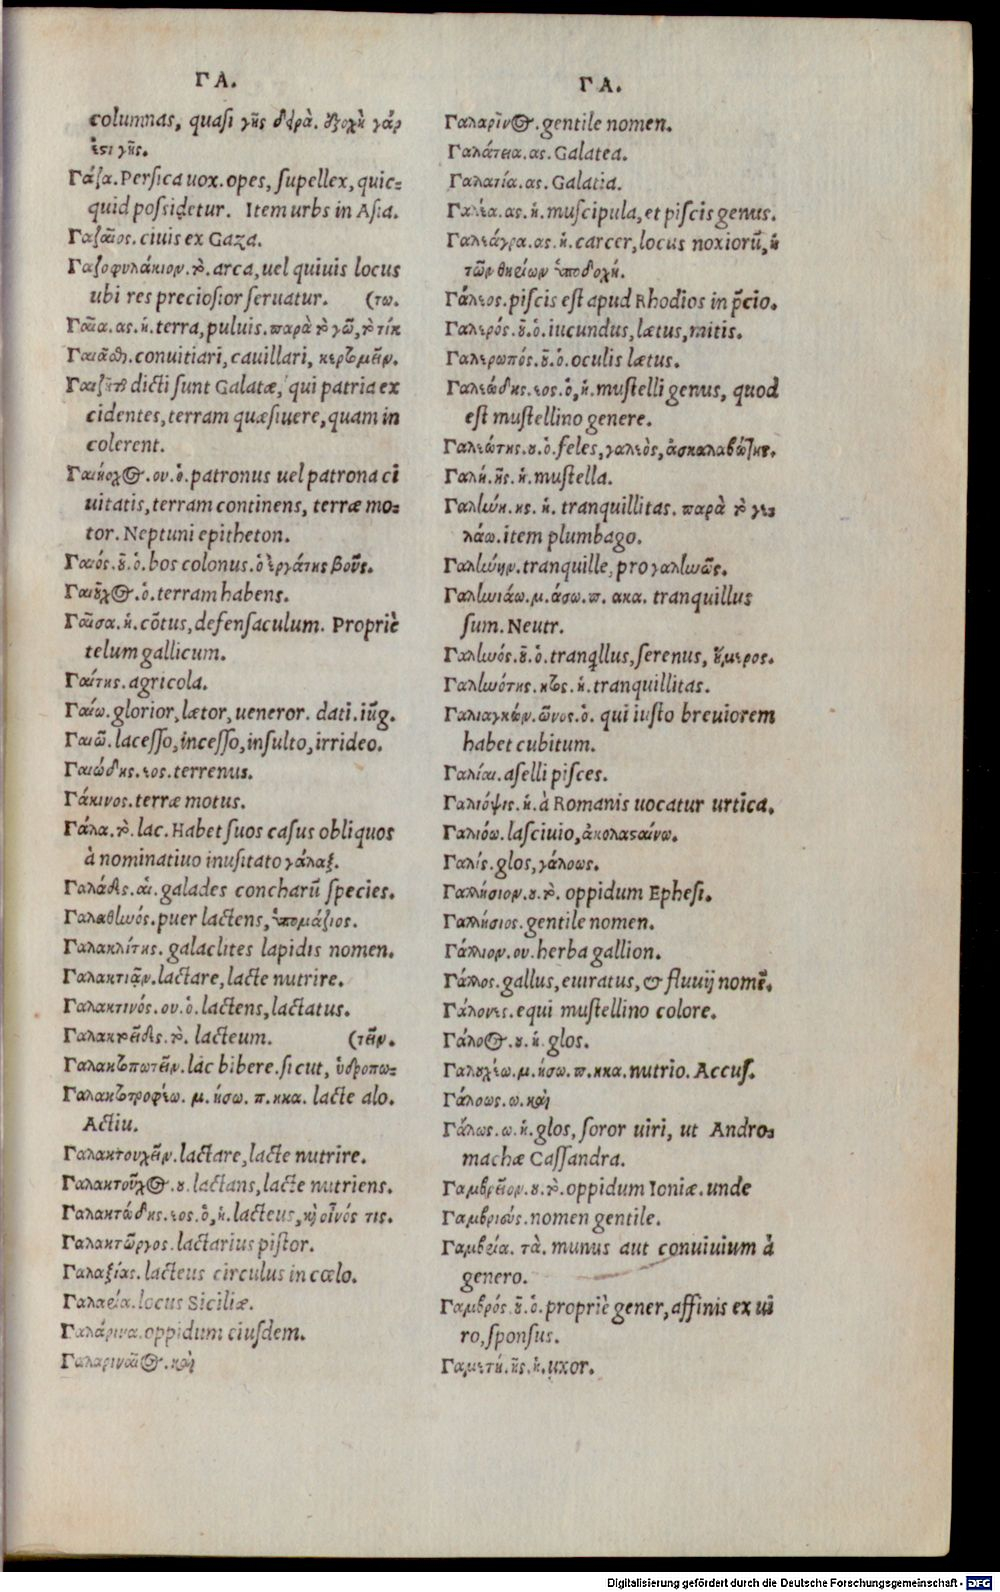 ΓΑ.
columnas, quasi γῆς ἕδρα. ἐξοχὴ γάρ
ἐστι γῆς.
Γάζα. Persica uox. opes, supellex, quic=
quid possidetur. Item urbs in Asia.
Γαζαῖος. ciuis ex Gaza.
Γαζοφυλάκιον. τὸ. arca, uel quiuis locus
ubi res preciosior seruatur. (τω.
Γαῖα. ας. ἡ. terra, puluis. παρὰ τὸ γῶ, τὸ τίκ
conuitiari, cauillari, κερτομεῖν.
dicti sunt Galatæ, qui patria ex
cidentes, terram quæsiuere, quam in
colerent.
Γαιήοχος. ου. ὁ. patronus uel patrona ci
uitatis, terram continens, terræ mo=
tor. Neptuni epitheton.
Γαιός. οῦ. ὁ. bos colonus. ὁ ἐργάτης βοῦς.
Γαιοῦχος. ὁ. terram habens.
Γαῖσα. ἡ. cōtus, defensaculum. Propriè
telum gallicum.
Γαίτης. agricola.
Γαίω. glorior, lætor, ueneror. dati. iūg.
Γαιῶ. lacesso, incesso, insulto, irrideo.
Γαιώδης. εος. terrenus.
Γάκινος. terræ motus.
Γάλα. τὸ. lac. Habet suos casus obliquos
à nominatiuo inusitato γάλαξ.
Γαλάδες. αἱ. galades concharū species.
Γαλαθηνός. puer lactens, ὑπομάζιος.
Γαλακλίτης. galaclites lapidis nomen.
Γαλακτιᾷν. lactare, lacte nutrire.
Γαλακτινός. ου. ὁ. lactens, lactatus.
Γαλακτῶδες. τὸ. lacteum. (τεῖν.
Γαλακτοποτεῖν. lac bibere. sicut, ὑδροπω=
Γαλακτοτροφέω. μ. ήσω. π. ηκα. lacte alo.
Actiu.
Γαλακτουχεῖν. lactare, lacte nutrire.
Γαλακτοῦχος. ου. lactans, lacte nutriens.
Γαλακτώδης. εος. ὁ, ἡ. lacteus, καὶ οἶνός τις.
Γαλακτῶργος. lactarius pistor.
Γαλαξίας. lacteus circulus in cœlo.
Γαλαρία. locus Siciliæ.
Γαλάρινα. oppidum eiusdem.
Γαλαριναῖος. καὶ
ΓΑ.
Γαλαρῖνος. gentile nomen.
Γαλάτεια. ας. Galatea.
Γαλατία. ας. Galatia.
Γαλέα. ας. ἡ. muscipula, et piscis genus.
Γαλεάγρα. ας. ἡ. carcer, locus noxiorū, ἡ
τῶν θηρίων ὑποδοχή.
Γάλεος. piscis est apud Rhodios in p̄cio.
Γαλερός. οῦ. ὁ. iucundus, lætus, mitis.
Γαλερωπός. οῦ. ὁ. oculis lætus.
Γαλεώδης. εος. ὁ, ἡ. mustelli genus, quod
est mustellino genere.
Γαλεώτης. ου. ὁ. feles, γαλεὸς, ἀσκαλαβώτης.
Γαλῆ. ῆς. ἡ. mustella.
Γαλήνη. ης. ἡ. tranquillitas. παρὰ τὸ γε=
λάω. item plumbago.
Γαλήνην. tranquille, pro γαληνῶς.
Γαληνιάω. μ. άσω. π. ακα. tranquillus
sum. Neutr.
Γαληνός. οῦ. ὁ. tranq̄llus, serenus, ἥμερος.
Γαληνότης. ητος. ἡ. tranquillitas.
Γαλιαγκών. ῶνος. ὁ. qui iusto breuiorem
habet cubitum.
Γαλίαι. aselli pisces.
Γαλιόψις. ἡ. à Romanis uocatur urtica.
Γαλιόω. lasciuio, ἀκολασταίνω.
Γαλίς. glos, γάλοως.
Γαλλήσιον. ου. τὸ. oppidum Ephesi.
Γαλλήσιος. gentile nomen.
Γάλλιον. ου. herba gallion.
Γάλλος. gallus, euiratus, & fluuij nomē.
Γάλονες. equi mustellino colore.
Γάλοος. ου. ἡ. glos.
Γαλουχέω. μ. ήσω. π. ηκα. nutrio. Accus.
Γάλοως. ω. καὶ
Γάλως. ω. ἡ. glos, soror uiri, ut Andro=
machæ Cassandra.
Γαμβρεῖον. ου. τὸ. oppidum Ioniæ. unde
Γαμβριεύς. nomen gentile.
Γαμβρία. τὰ. munus aut conuiuium à
genero.
Γαμβρός. οῦ. ὁ. propriè gener, affinis ex ui
ro, sponsus.
Γαμετή. ῆς. ἡ. uxor.
Digitalisierung gefördert durch die Deutsche Forschungsgemeinschaft - DFG